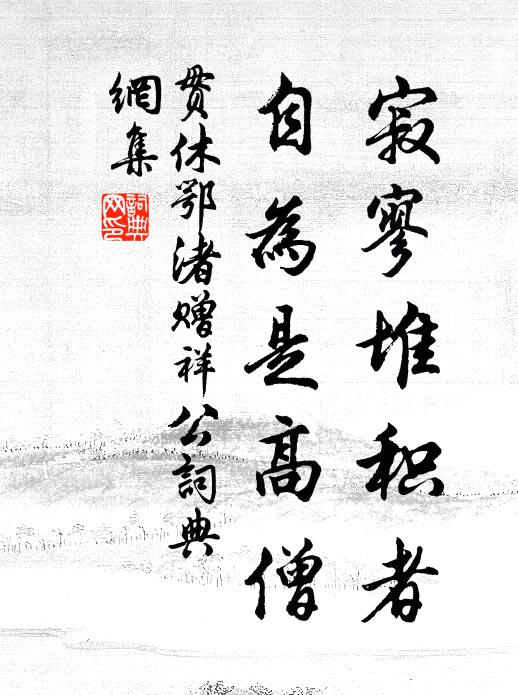 寂寥堆积者
自為是高僧
贯休鄂渚赠祥公詞典
網集
詞典
网印